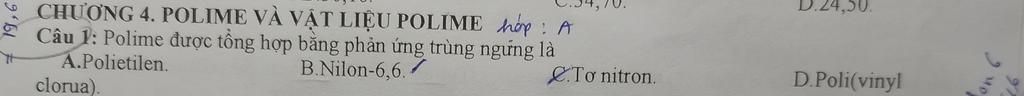 C.34,70. D.24,50.
CHƯƠNG 4. POLIME VÀ VẬT LIỆU POLIME hóp : A
Câu 1: Polime được tổng hợp bằng phản ứng trùng ngưng là
A.Polietilen. B.Nilon-6,6. C.Tơ nitron. D.Poli(vinyl
clorua).